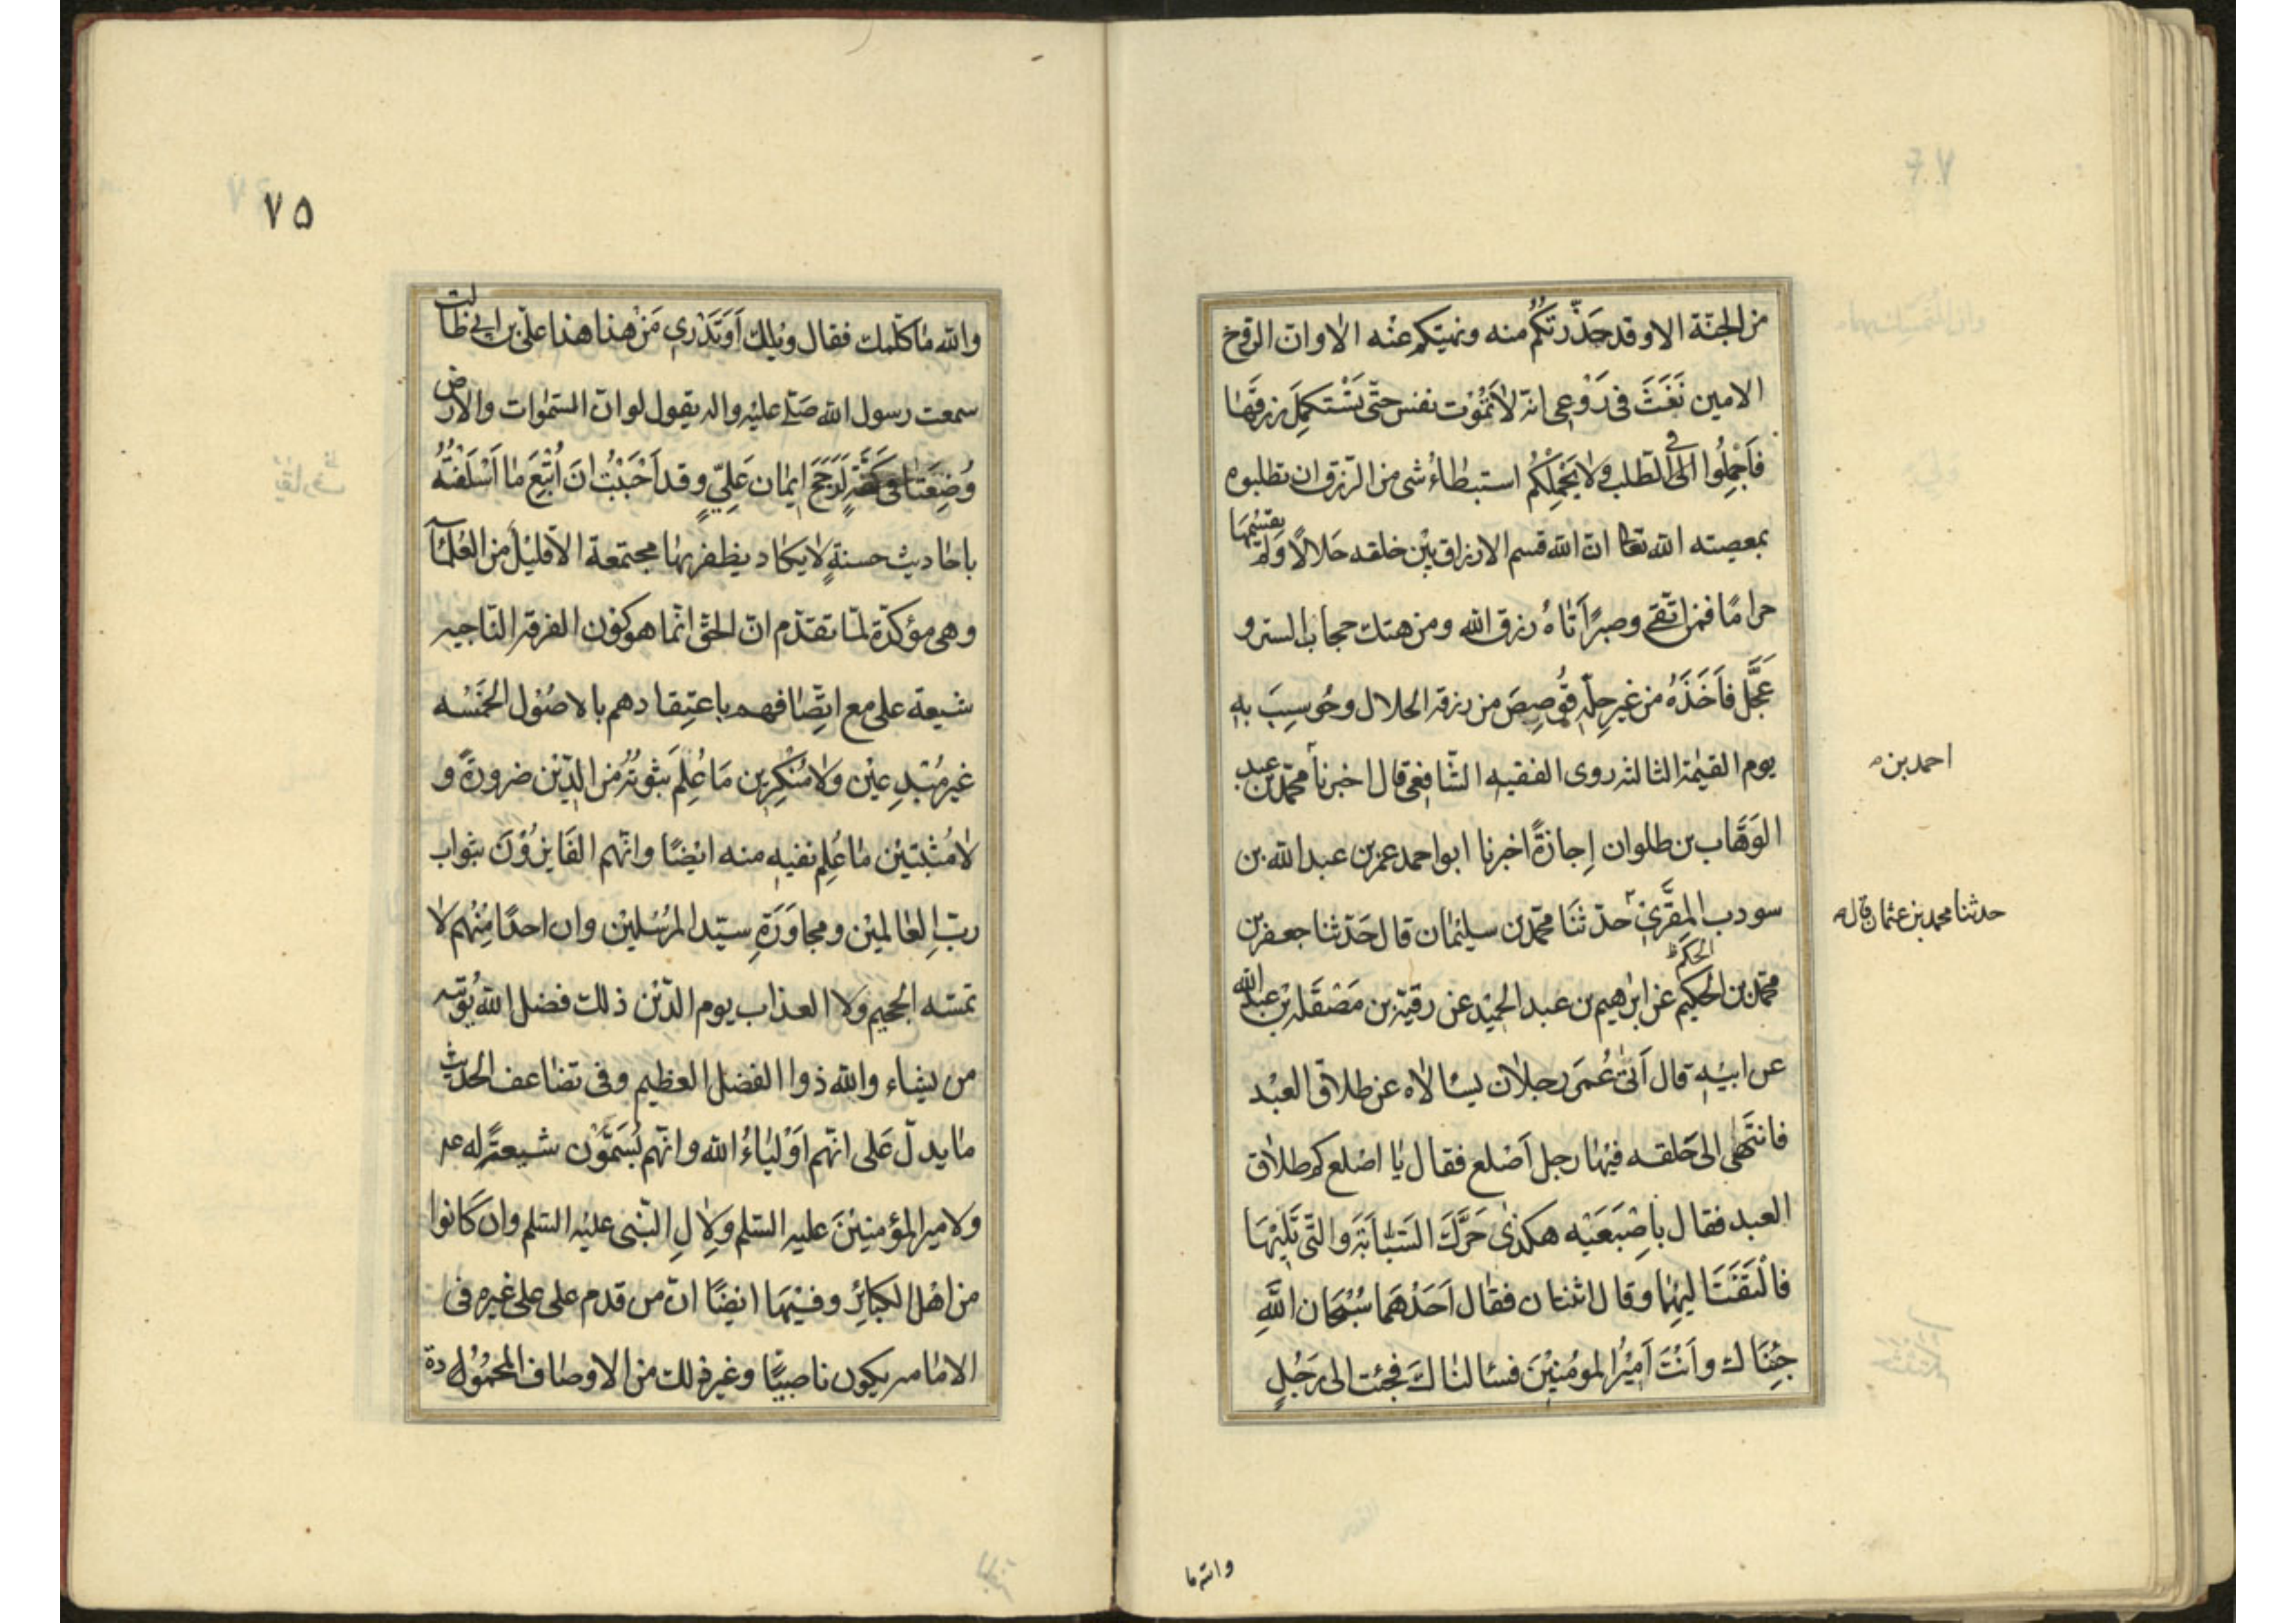 من الجنّة الا وقد حَذَّرتكُم منه ونهيتكم عنْه الا وان الروح
الامين نَفَثَ فى رَوْعى انه لا تَمُوْت نفس حتّى تَسْتكمِلَ رزقَها
فَاَجْمِلُوا الى فى الطّلب ولا يَحْمِلْكُم استبطاءُ شى من الرّزق ان تطلبوه
بمعصيته الله تعالى ان الله قسم الارزاق بيْن خلقه حَلالًا وَلم يقسمْهَا
حرامًا فمن اتّقى وصبرًا اَتاهُ رزق الله ومن هتك حجاب الستر و
عَجَّل فاَخَذَهُ من غير حِلّه قُوصِصَ من رزقه الحلال وحُوسِبَ بهِ
يوم القيٰمة الثالثه روى الفقيه الشّافعى قال اخبرنا محمّد بن عبد
احمد بن
الوَهّاب بن طلوان إِجازةً اخبرنا ابو احمد عمر بن عبد الله بن
سودب المقَّرى حدّثنَا محمّد بن سليمان قال حَدّثنا جعفر بن
حدثنا محمد بن عثمان قال
محمّد بن الحكيم الحكم عن ابرٰهيم بن عبد الحميْد عن رقيّة بن مَصْقَله بن عبد الله
عن ابيْهِ قال اَتى عُمَرَ رجلان يسالاه عن طلاق العبْد
فانتَهٰى الى حَلقه فيْها رجل اَصْلع فقال يا اصْلع كم طلاق
العبد فقال باصْبَعَيْه هكذى حَرَّكَ السَّبّابَةَ والتّى تَليْهَا
فالْتَفَتَا ليهما وقال اثنان فقال اَحَدُهمَا سُبْحان اللهِ
جِئنَاك واَنْتَ اَمِيْرُ المومنيْنَ فسالناكَ فجئت الى رَجُلٍ
والله ما
٧٥
والله مٰا كلّمك فقال ويْلك اَوَتَدْرى مَنْ هٰذا هذا علىّ بن ابى طالب
سمعت رسول الله صَلّى عليْه واله يقول لو ان السّمٰوات والارض
وُضِعَتا فى كَفّةٍ لَرَجَحَ ايمٰان عَلِىٍّ وقد اَحْبَبْتُ انَ اُتْبِعَ مٰا اَسْلَفْتُهُ
باحٰاديث حسنةٍ لايكاد يظفر بهٰا مجتمعة الا قليْل من العُلمٰآء
وهى مؤكدّة لمٰا تقدّم انّ الحقّ انّما هو كون الفرقه الناجيه
شيعة على مع اتِّصافهم باعتِقادهم بالاصُوْل الخمَسْه
غير مُبْتدِعيْن ولا مُنْكِرين مَا عُلِمَ ثبوتُهُ من الدّيْن ضرورةً و
لا مُثْبتيْن مٰا عُلِم نفيهِ منه ايْضًا وانّهم الفَايزوْنَ بثواب
ربّ العٰالميْن ومجاوَرَةِ سيّد المرْسليْن وان احدًا مِنْهم لا
تمسّه الجحيم ولا العذاب يوم الدّيْن ذلك فضل الله يُؤتيه
من يشاء والله ذوا الفضل العظيم وفى تضاعف الحديث
مٰا يدلّ عَلى انّهم اَوْلياءُ الله وانّهم يُسَمَّوْن شيعةً له
ولامير المؤمنيْنَ عليه السّلم ولاِلِ النّبى عليْه السّلم وان كانوا
من اهْل الكبايْر وفيْهَا ايضًا انّ من قدم على على غيره فى
الامٰامه يكون ناصبيًّا وغير ذلك من الاوصٰاف المحمُوْدة